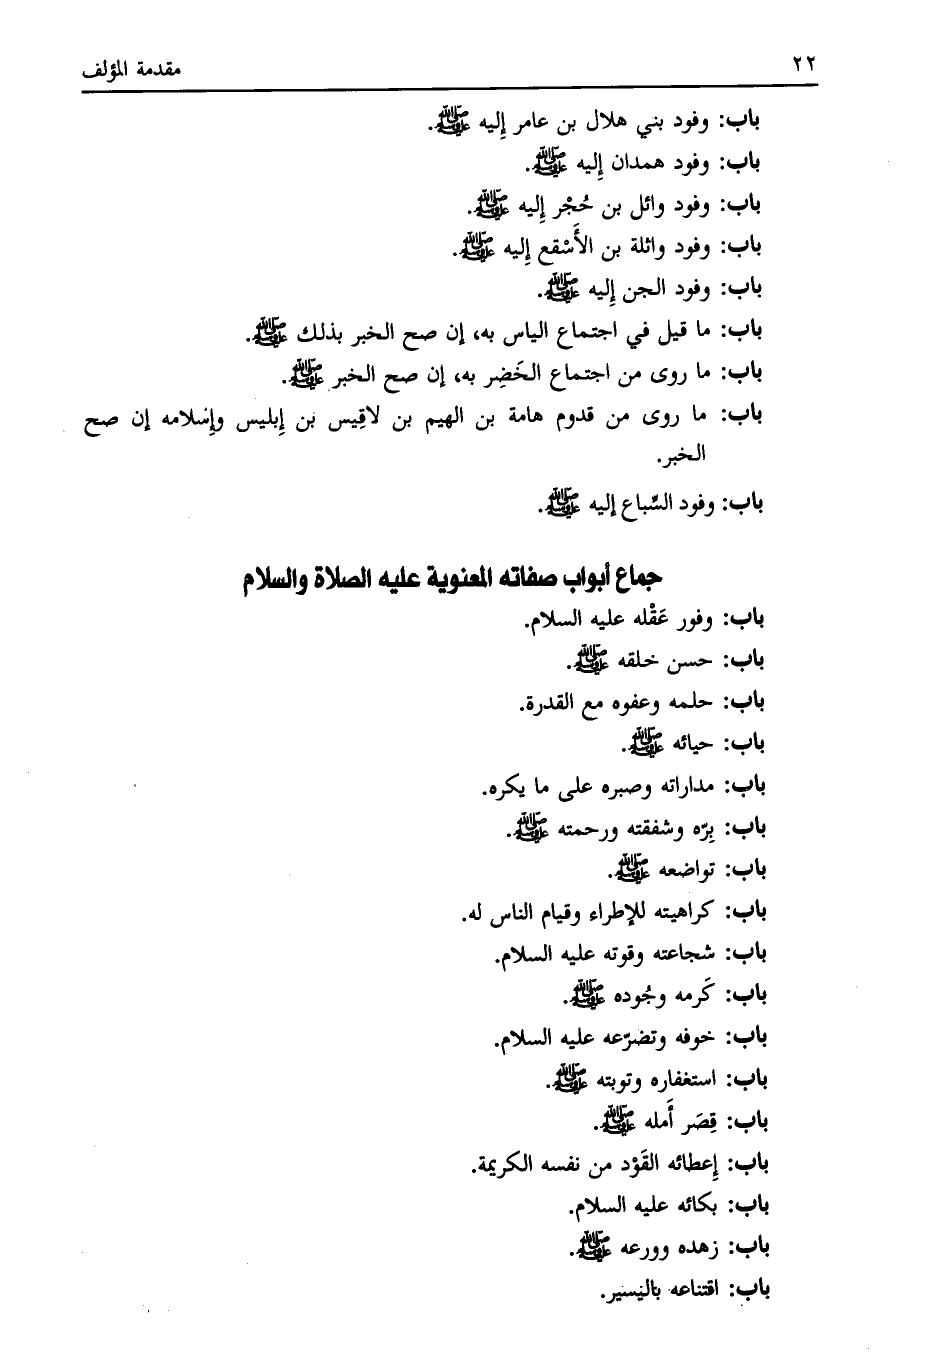 ٢٢ مقدمة المؤلف
باب: وفود بني هلال بن عامر إليه ﷺ.
باب: وفود همدان إليه ﷺ.
باب: وفود وائل بن حُجْر إليه ﷺ.
باب: وفود واثلة بن الأَسْقع إليه ﷺ.
باب: وفود الجن إليه ﷺ.
باب: ما قيل في اجتماع الياس به، إن صح الخبر بذلك ﷺ.
باب: ما روى من اجتماع الخَضِر به، إن صح الخبر ﷺ.
باب: ما روى من قدوم هامة بن الهيم بن لاقِيس بن إبليس وإسلامه إن صح
الخبر.
باب: وفود السِّباع إليه ﷺ.
جماع أبواب صفاته المعنوية عليه الصلاة والسلام
باب: وفور عَقْله عليه السلام.
باب: حسن خلقه ﷺ.
باب: حلمه وعفوه مع القدرة.
باب: حيائه ﷺ.
باب: مداراته وصبره على ما يكره.
باب: بِرّه وشفقته ورحمته ﷺ.
باب: تواضعه ﷺ.
باب: كراهيته للإطراء وقيام الناس له.
باب: شجاعته وقوته عليه السلام.
باب: كَرمه وجُوده ﷺ.
باب: خوفه وتضرّعه عليه السلام.
باب: استغفاره وتوبته ﷺ.
باب: قِصَر أَمله ﷺ.
باب: إِعطائه القَوْد من نفسه الكريمة.
باب: بكائه عليه السلام.
باب: زهده وورعه ﷺ.
باب: اقتناعه باليسير.